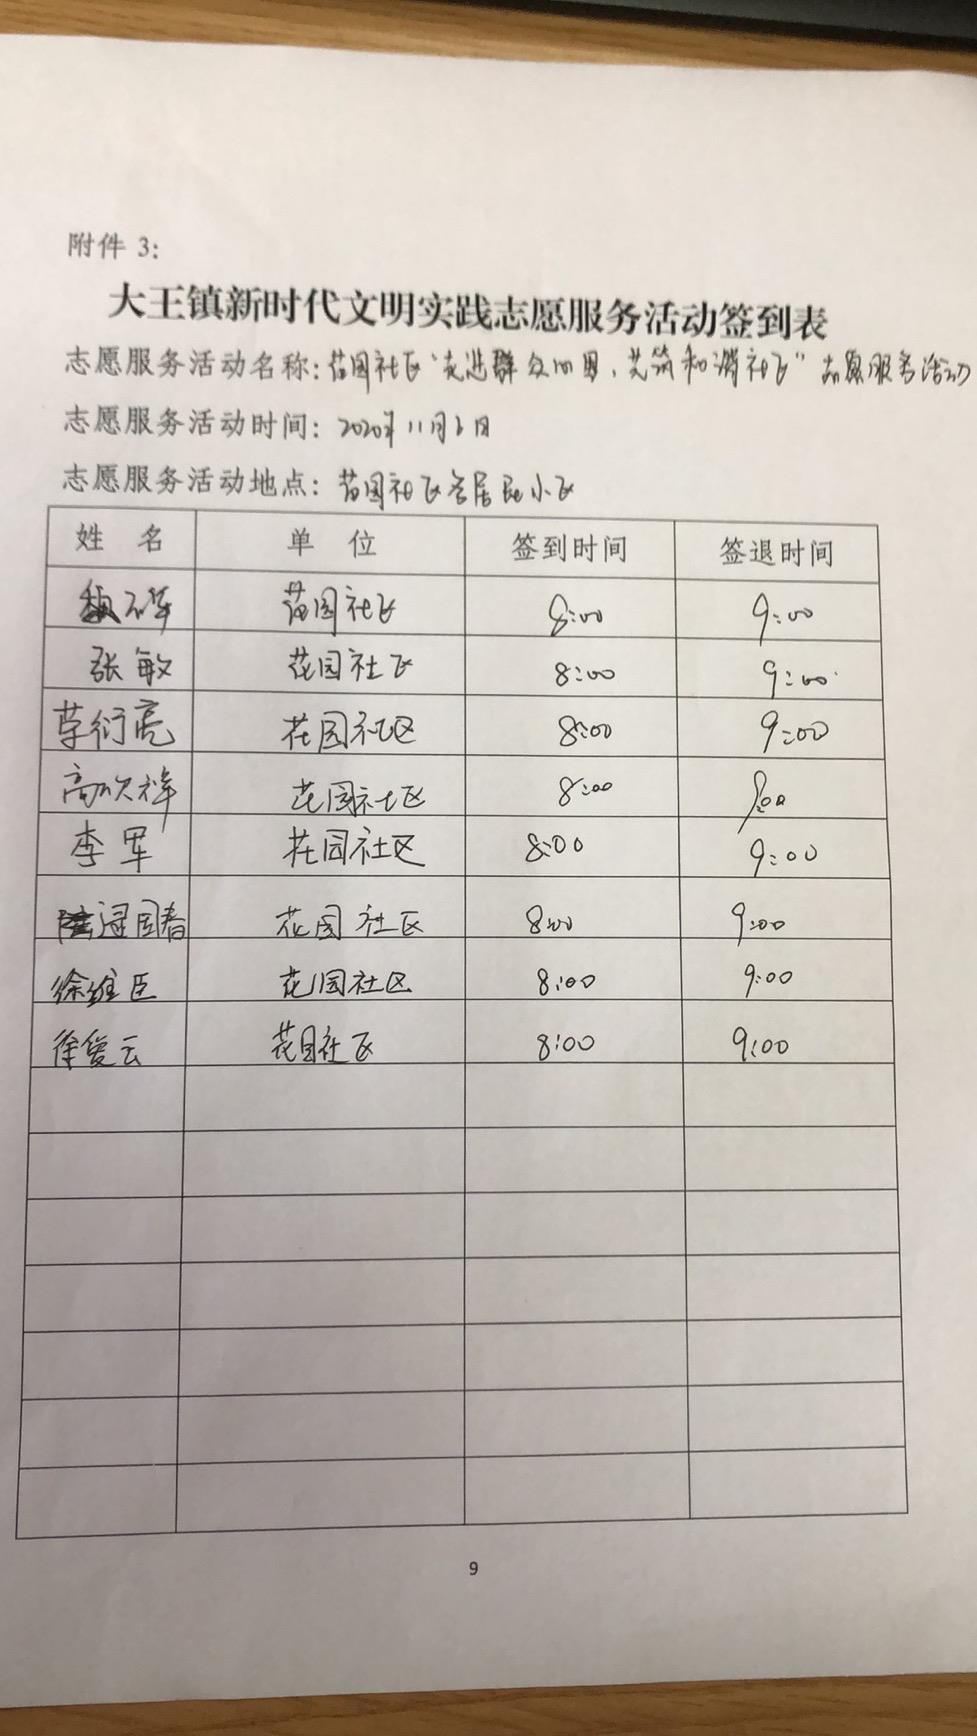 附件 3:
大王镇新时代文明实践志愿服务活动签到表
志愿服务活动名称: 花园社区“走进群众心里、共筑和谐社区”志愿服务活动
志愿服务活动时间: 2020年11月2日
志愿服务活动地点: 花园社区各居民小区
姓 名 单 位 签到时间 签退时间
花园社区 8:00 9:00
张敏 花园社区 8:00 9:00
花园社区 8:00 9:00
高以祥 花园社区 8:00 9:00
李军 花园社区 8:00 9:00
国春 花园社区 8:00 9:00
徐维臣 花园社区 8:00 9:00
徐俊云 花园社区 8:00 9:00
9